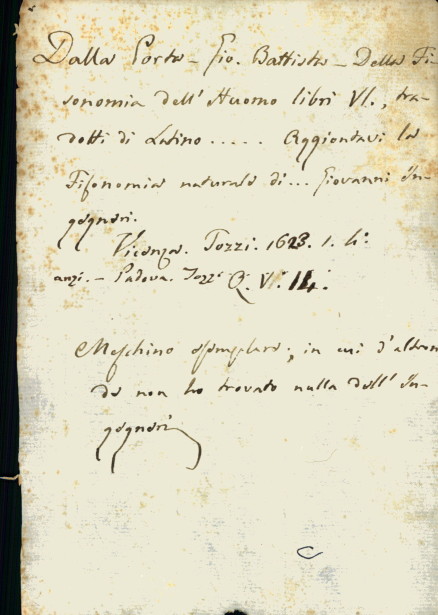 Dalla Porta - Gio. Battista - Della Fi-
sonomia dell' Huomo libri VI., tra-
dotti di Latino ..... Aggiontavi la
Fisonomia naturale di ... Giovanni In-
gegneri.
Vicenza. Tozzi. 1623. 1. li.
anzi. - Padova. Tozzi Q. VI. 14.
Meschino esemplare; in cui d'altron
de non ho trovato nulla dell' In-
gegneri